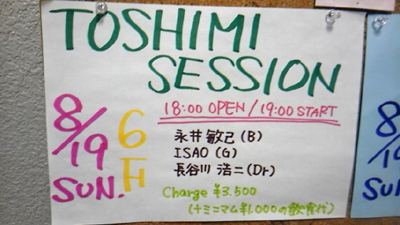 TOSHIMI
SESSION
8/19
SUN.
6F
18:00 OPEN / 19:00 START
永井 敏己 (B)
ISAO (G)
長谷川 浩二 (Dr)
Charge ¥3.500
(+ミニマム¥1,000の飲食代)
8/
SUN